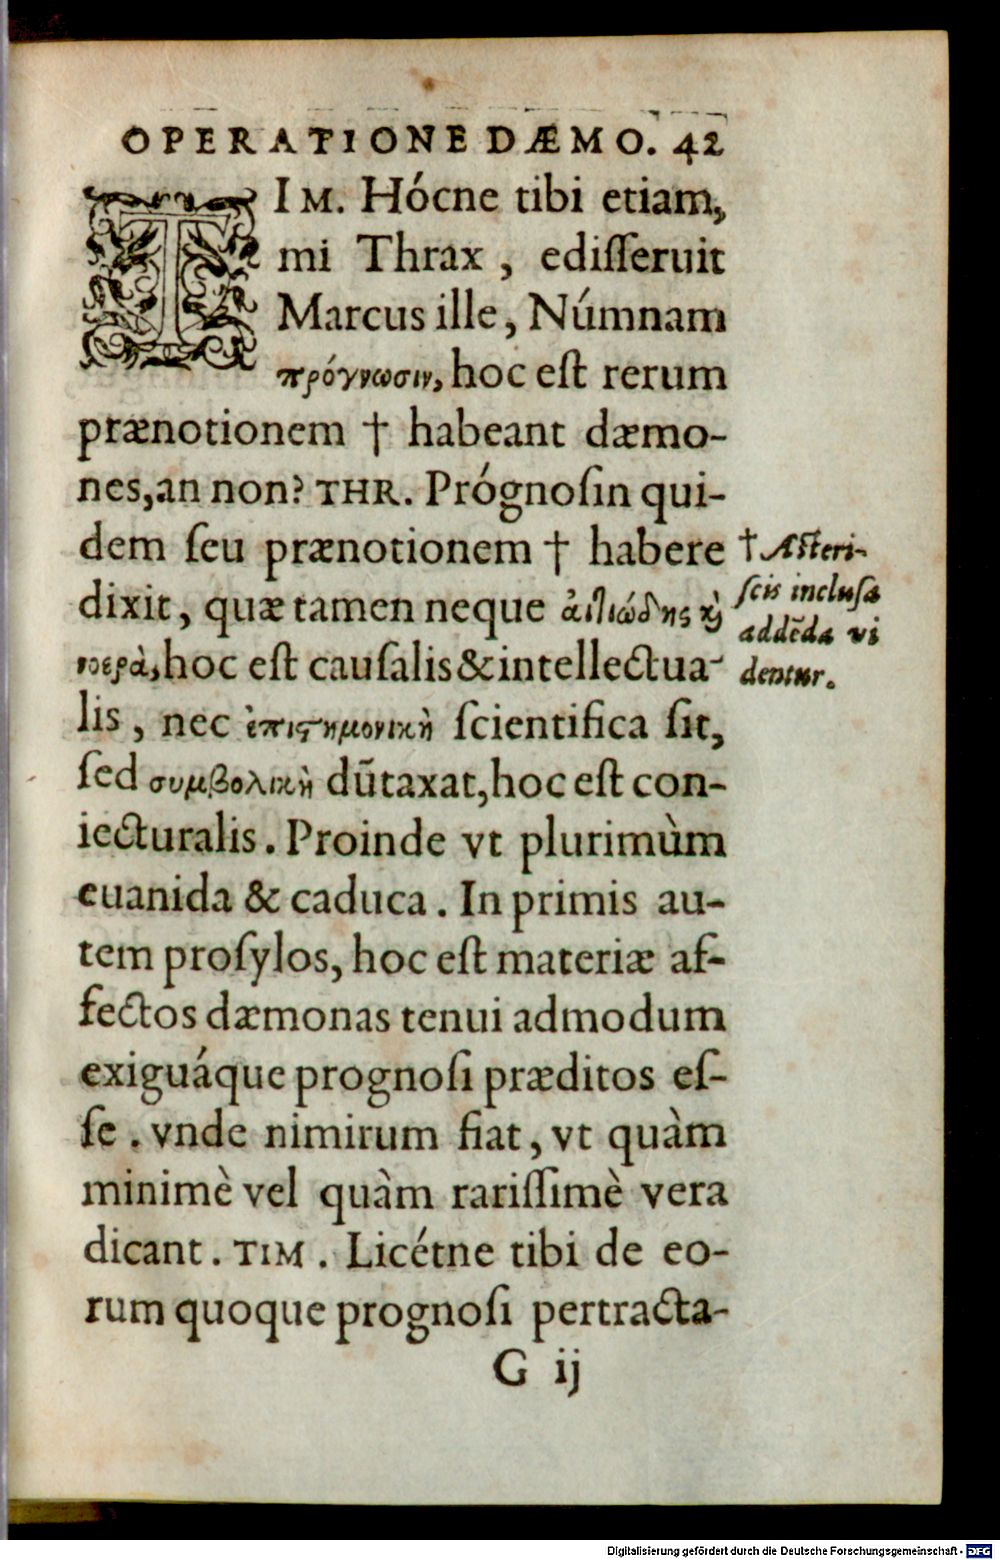 OPERATIONE DÆMO. 42
TIM. Hócne tibi etiam,
mi Thrax, ediſſeruit
Marcus ille, Númnam
πρόγνωσιν, hoc eſt rerum
prænotionem † habeant dæmo-
nes, an non? THR. Prógnoſin qui-
dem ſeu prænotionem † habere
dixit, quæ tamen neque αἰτιώδης ϗ̀
νοερὰ, hoc eſt cauſalis & intellectua-
lis, nec ἐπιστημονικὴ ſcientifica ſit,
ſed συμβολικὴ dūtaxat, hoc eſt con-
iecturalis. Proinde vt plurimùm
euanida & caduca. In primis au-
tem proſylos, hoc eſt materiæ af-
fectos dæmonas tenui admodum
exiguáque prognoſi præditos eſ-
ſe. vnde nimirum fiat, vt quàm
minimè vel quàm rariſſimè vera
dicant. TIM. Licétne tibi de eo-
rum quoque prognoſi pertracta-
G ij
† Aſteri-
ſcis incluſa
addēda vi
dentur.
Digitalisierung gefördert durch die Deutsche Forschungsgemeinschaft - DFG